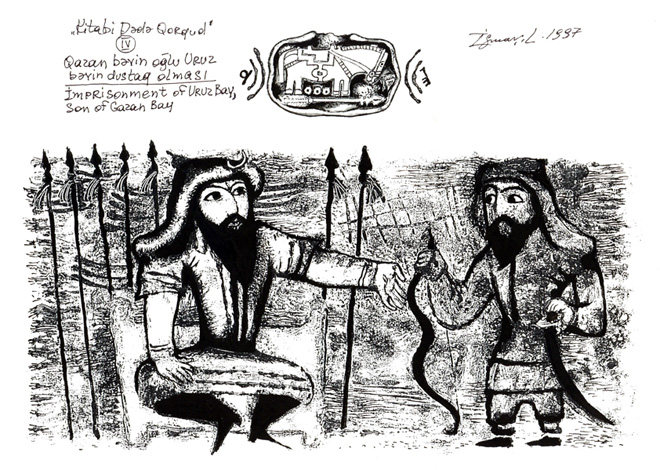 „Kitabi Dədə Qorqud“
IV
Qazan bəyin oğlu Uruz
bəyin dustaq olması
Imprisonment of Uruz Bay,
son of Gazan Bay
1997